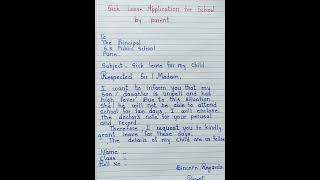 Sick Leave Application for School
by parent
To
The Principal
S.S Public School
Pune.
Subject - Sick leave for my child.
Respected Sir / Madam,
I want to inform you that my
Son / daughter is unwell and had
high fever. Due to this situation,
She / he will not be able to attend
school for two days. I will enclose
the doctor's note for your perusal
and record.
Therefore, I request you to kindly
grant leave for these days.
The details of my child are as follow
Name :-
Class :-
Roll No :-
Sincere Regards
Parent